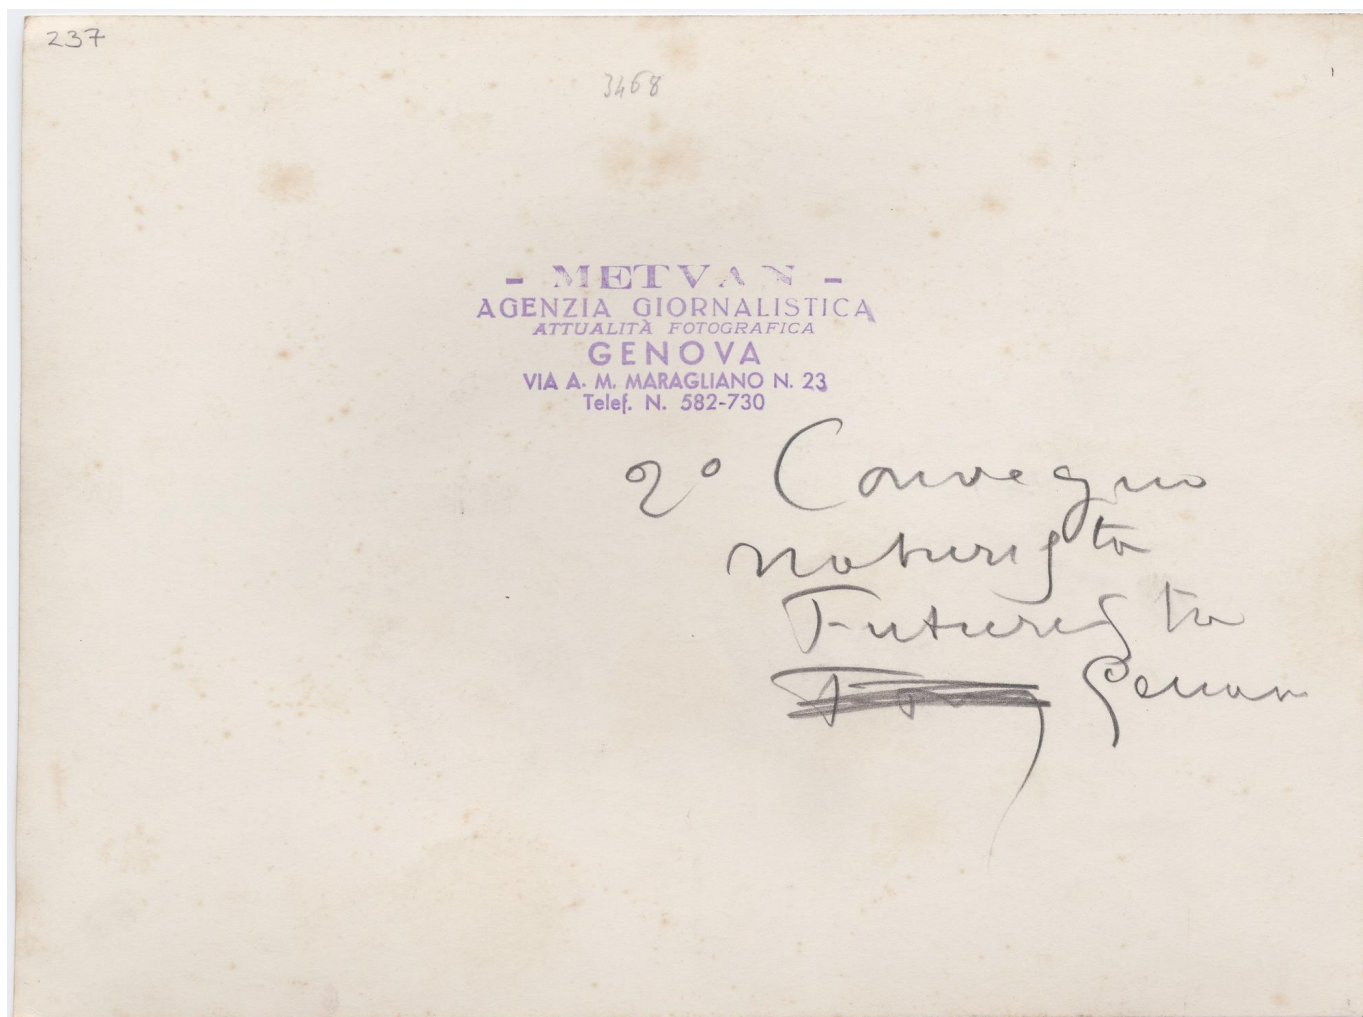 237
3468
- METVAN -
AGENZIA GIORNALISTICA
ATTUALITÀ FOTOGRAFICA
GENOVA
VIA A. M. MARAGLIANO N. 23
Telef. N. 582-730
2° Convegno
naturista
Futurista
Genova